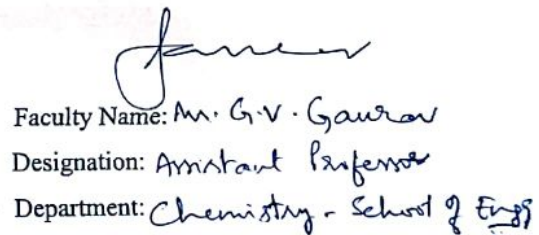 Faculty Name: Mr. G.V. Gaurav
Designation: Assistant Professor
Department: Chemistry - School of Engg